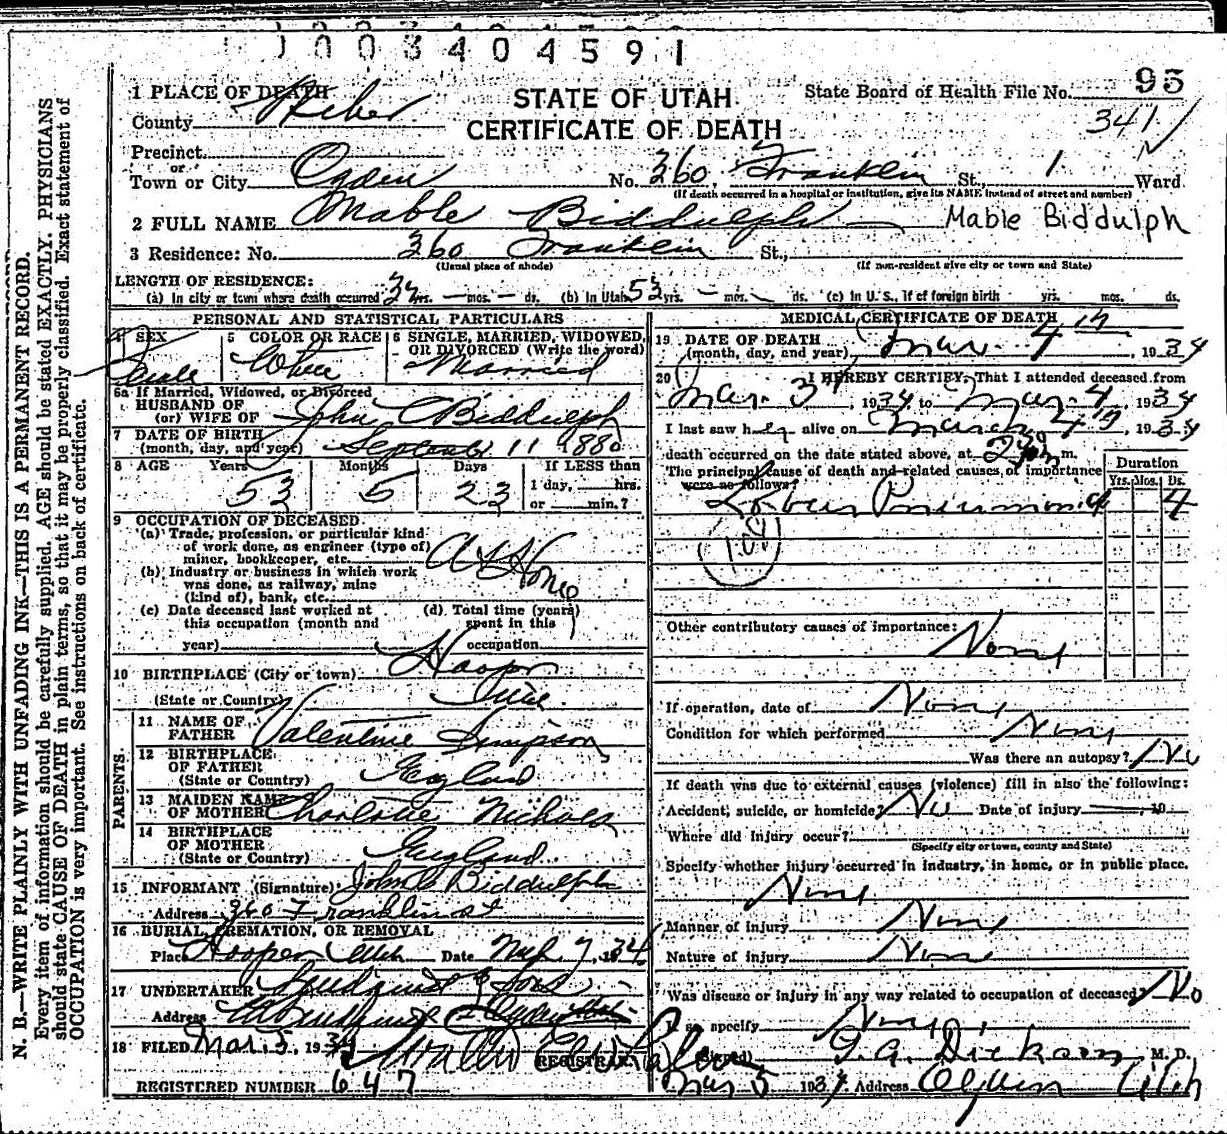 1003404591
95
1 PLACE OF DEATH
STATE OF UTAH
State Board of Health File No.
County Weber
CERTIFICATE OF DEATH
341
Precinct
or
Town or City Ogden No. 360 Franklin St., 1 Ward
(If death occurred in a hospital or institution, give its NAME instead of street and number)
2 FULL NAME Mable Biddulph Mable Biddulph
3 Residence: No. 360 Franklin St.,
(Usual place of abode) (If non-resident give city or town and State)
LENGTH OF RESIDENCE:
(a) In city or town where death occurred yrs. — mos. — ds. (b) In Utah 53 yrs. — mos. ds. (c) In U. S., if of foreign birth yrs. mos. ds.
PERSONAL AND STATISTICAL PARTICULARS
4 SEX 5 COLOR OR RACE 6 SINGLE, MARRIED, WIDOWED, OR DIVORCED (Write the word)
Female White Married
6a If Married, Widowed, or Divorced
HUSBAND OF
(or) WIFE OF John C Biddulph
7 DATE OF BIRTH
(month, day, and year) September 11 1880
8 AGE Years Months Days If LESS than
53 5 23 1 day, hrs.
or min.?
9 OCCUPATION OF DECEASED
(a) Trade, profession, or particular kind
of work done, as engineer (type of)
miner, bookkeeper, etc. At Home
(b) Industry or business in which work
was done, as railway, mine
(kind of), bank, etc.
(c) Date deceased last worked at (d) Total time (years)
this occupation (month and spent in this
year) occupation
10 BIRTHPLACE (City or town) Hooper
(State or Country)
PARENTS
11 NAME OF
FATHER Valentine Simpson
12 BIRTHPLACE
OF FATHER England
(State or Country)
13 MAIDEN NAME
OF MOTHER Charlotte Nichols
14 BIRTHPLACE
OF MOTHER England
(State or Country)
15 INFORMANT (Signature) John C Biddulph
Address 360 Franklin st
16 BURIAL, CREMATION, OR REMOVAL
Place Hooper Utah Date 7, 1934
17 UNDERTAKER Lindquist & Sons
Address
18 FILED Mar. 5, 1934
REGISTRAR
REGISTERED NUMBER 647
MEDICAL CERTIFICATE OF DEATH
19 DATE OF DEATH
(month, day, and year) Mar. 4th, 1934
20 I HEREBY CERTIFY, That I attended deceased from
Mar. 3, 1934 to Mar. 4, 1934
I last saw her alive on March 4th, 1934
death occurred on the date stated above, at m.
The principal cause of death and related causes of importance
were as follows:
Duration
Yrs. Mos. Ds.
Lobar Pneumonia 4
108
Other contributory causes of importance:
None
If operation, date of None
Condition for which performed None
Was there an autopsy? No
If death was due to external causes (violence) fill in also the following:
Accident, suicide, or homicide? No Date of injury 19
Where did injury occur?
(Specify city or town, county and State)
Specify whether injury occurred in industry, in home, or in public place.
None
Manner of injury None
Nature of injury None
Was disease or injury in any way related to occupation of deceased? No
If so, specify None
(Signed) Dickson, M. D.
Mar 5 1934 Address Ogden Utah
N. B.—WRITE PLAINLY WITH UNFADING INK—THIS IS A PERMANENT RECORD.
Every item of information should be carefully supplied. AGE should be stated EXACTLY. PHYSICIANS
should state CAUSE OF DEATH in plain terms, so that it may be properly classified. Exact statement of
OCCUPATION is very important. See instructions on back of certificate.